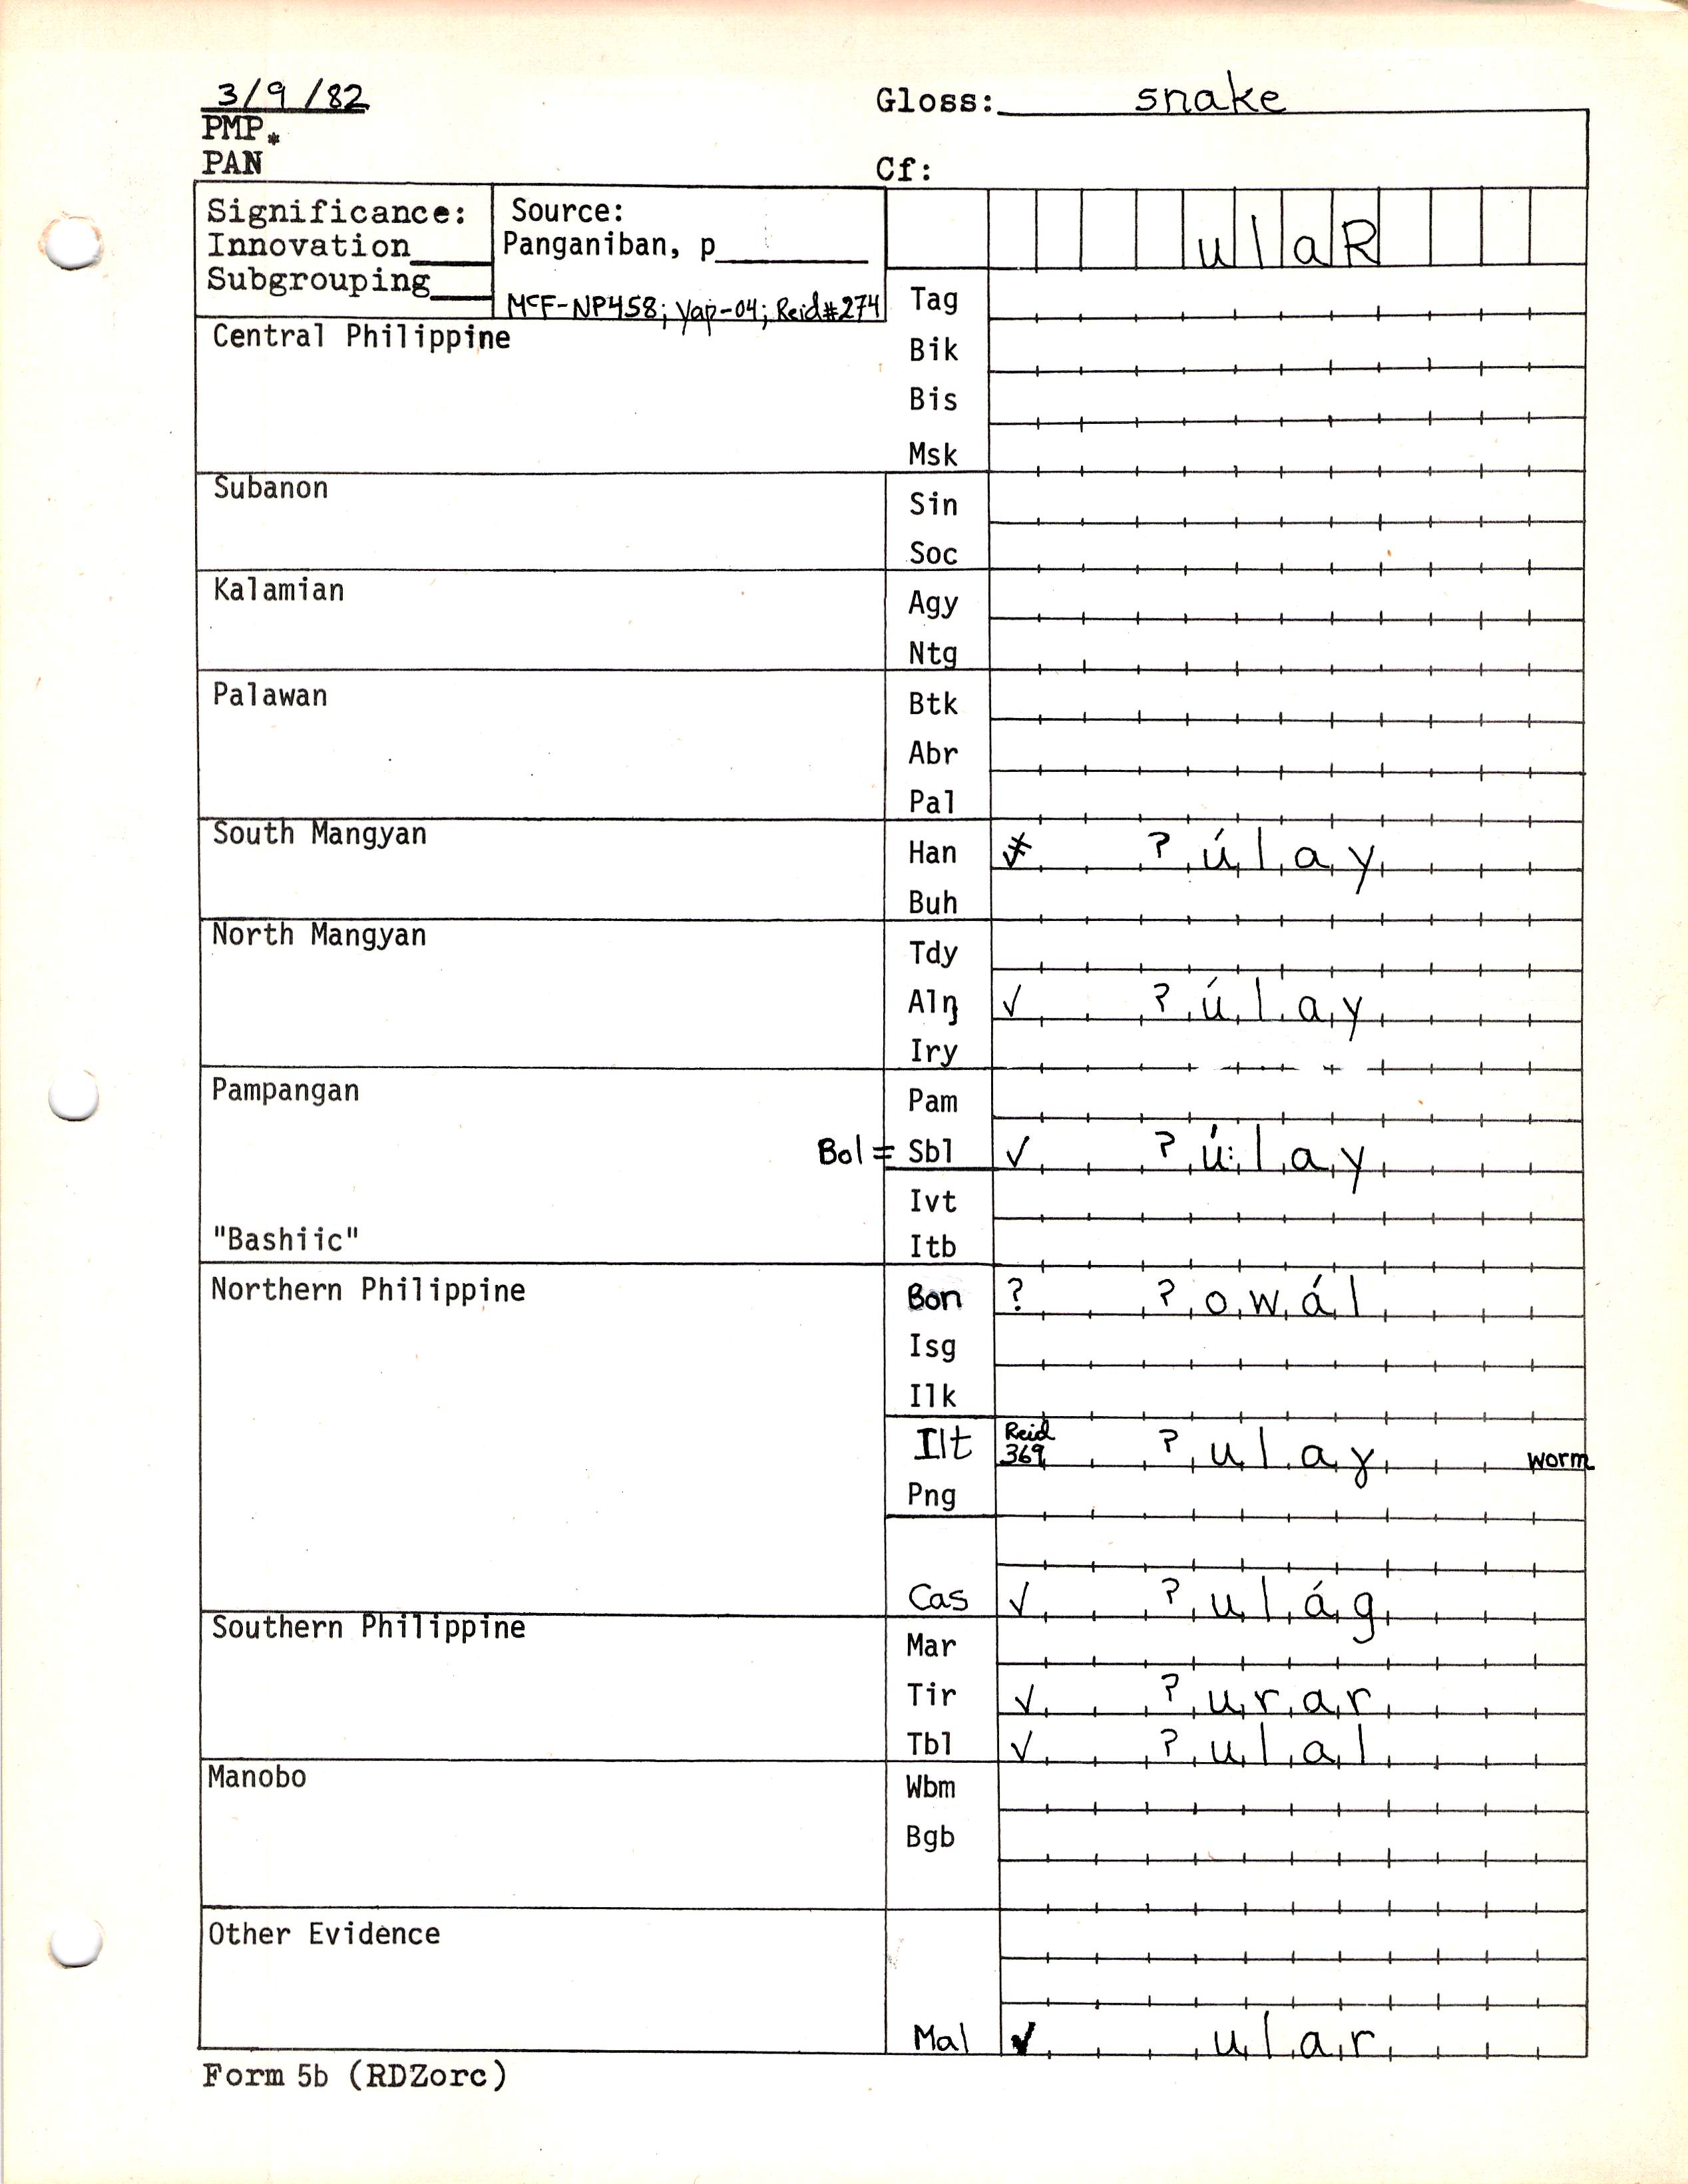 3/9/82 Gloss: snake
PMP*
PAN Cf:
Significance: Source: ulaR
Innovation____ Panganiban, p________
Subgrouping____
McF-NP458; Yap-04; Reid#274 Tag
Central Philippine
Bik
Bis
Msk
Subanon
Sin
Soc
Kalamian
Agy
Ntg
Palawan
Btk
Abr
Pal
South Mangyan
Han ≠ ʔúlay
Buh
North Mangyan
Tdy
Alŋ ✓ ʔúlay
Iry
Pampangan
Pam
Bol = Sbl ✓ ʔú:lay
Ivt
"Bashiic" Itb
Northern Philippine Bon ? ʔowál
Isg
Ilk
Ilt Reid 369 ʔulaɣ worm
Png
Cas ✓ ʔulág
Southern Philippine
Mar
Tir ✓ ʔurar
Tbl ✓ ʔulal
Manobo
Wbm
Bgb
Other Evidence
Mal ✓ ular
Form 5b (RDZorc)